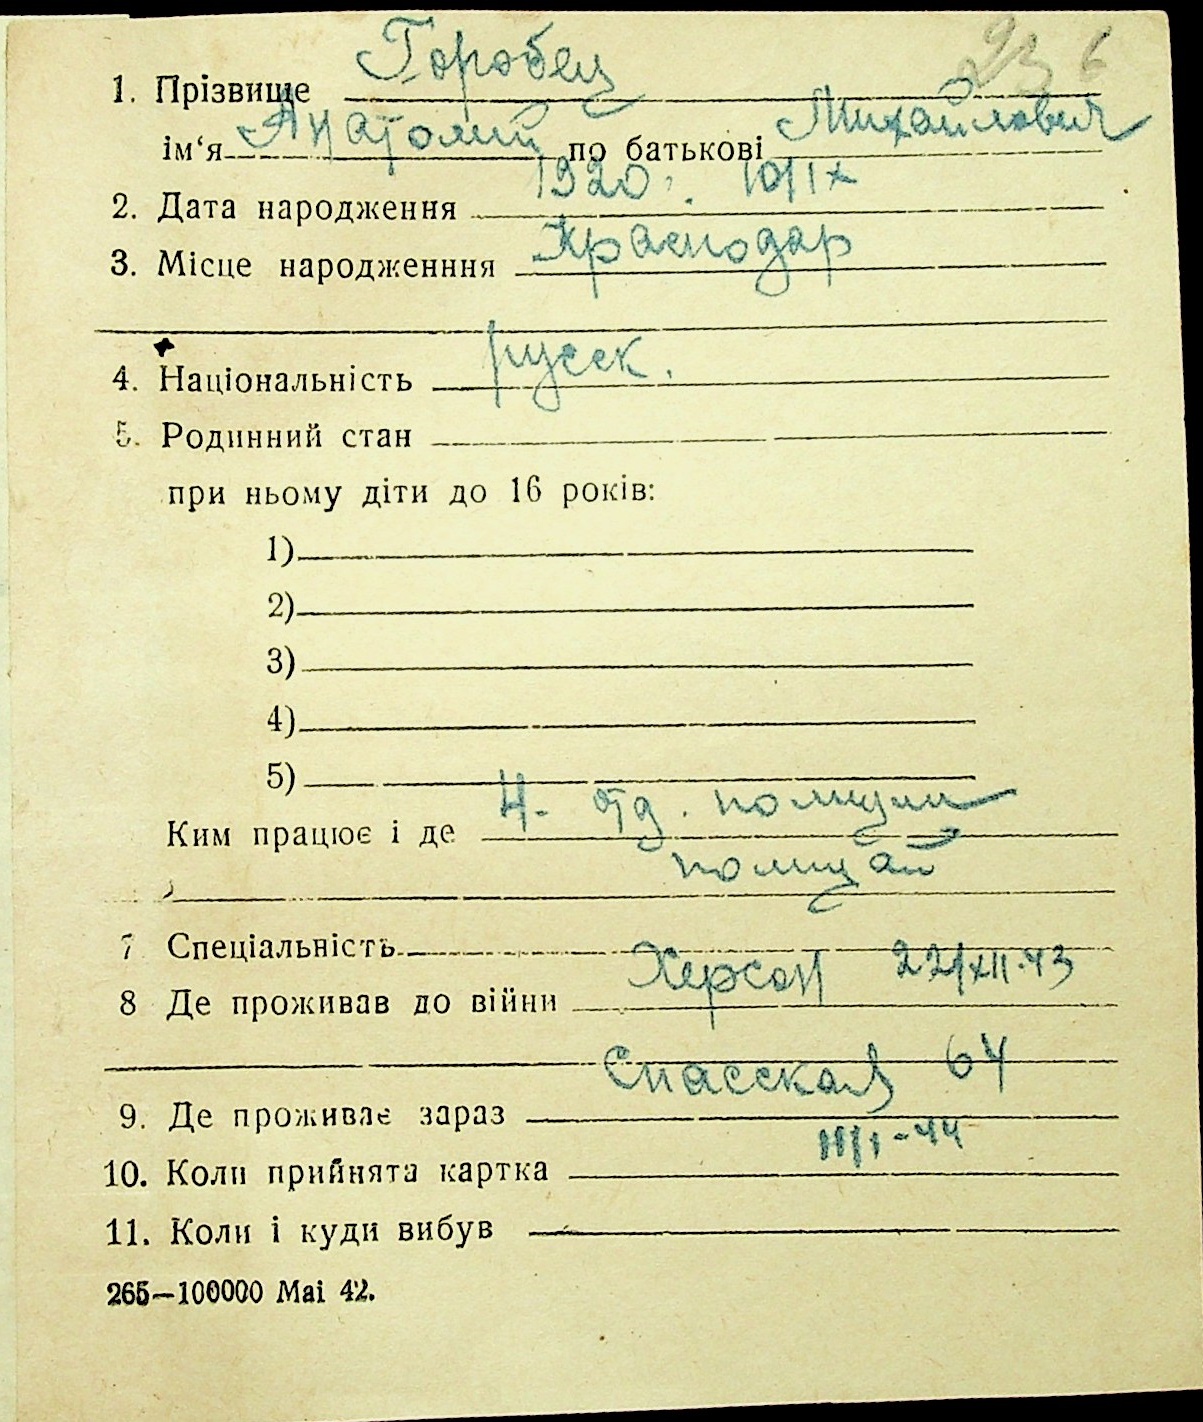 23 6
1. Прізвище Горобец
ім‘я Анатолий по батькові Михайлович
2. Дата народження 1920. 10/IX
3. Місце народженння Краснодар
4. Національність русск.
5. Родинний стан
при ньому діти до 16 років:
1)
2)
3)
4)
5)
Ким працює і де 4. отд. полиции
полицай
7 Спеціальність
8 Де проживав до війни Херсон 22/XII-43
9. Де проживає зараз Спасская 64
10. Коли прийнята картка /I-44
11. Коли і куди вибув
265—100000 Mai 42.